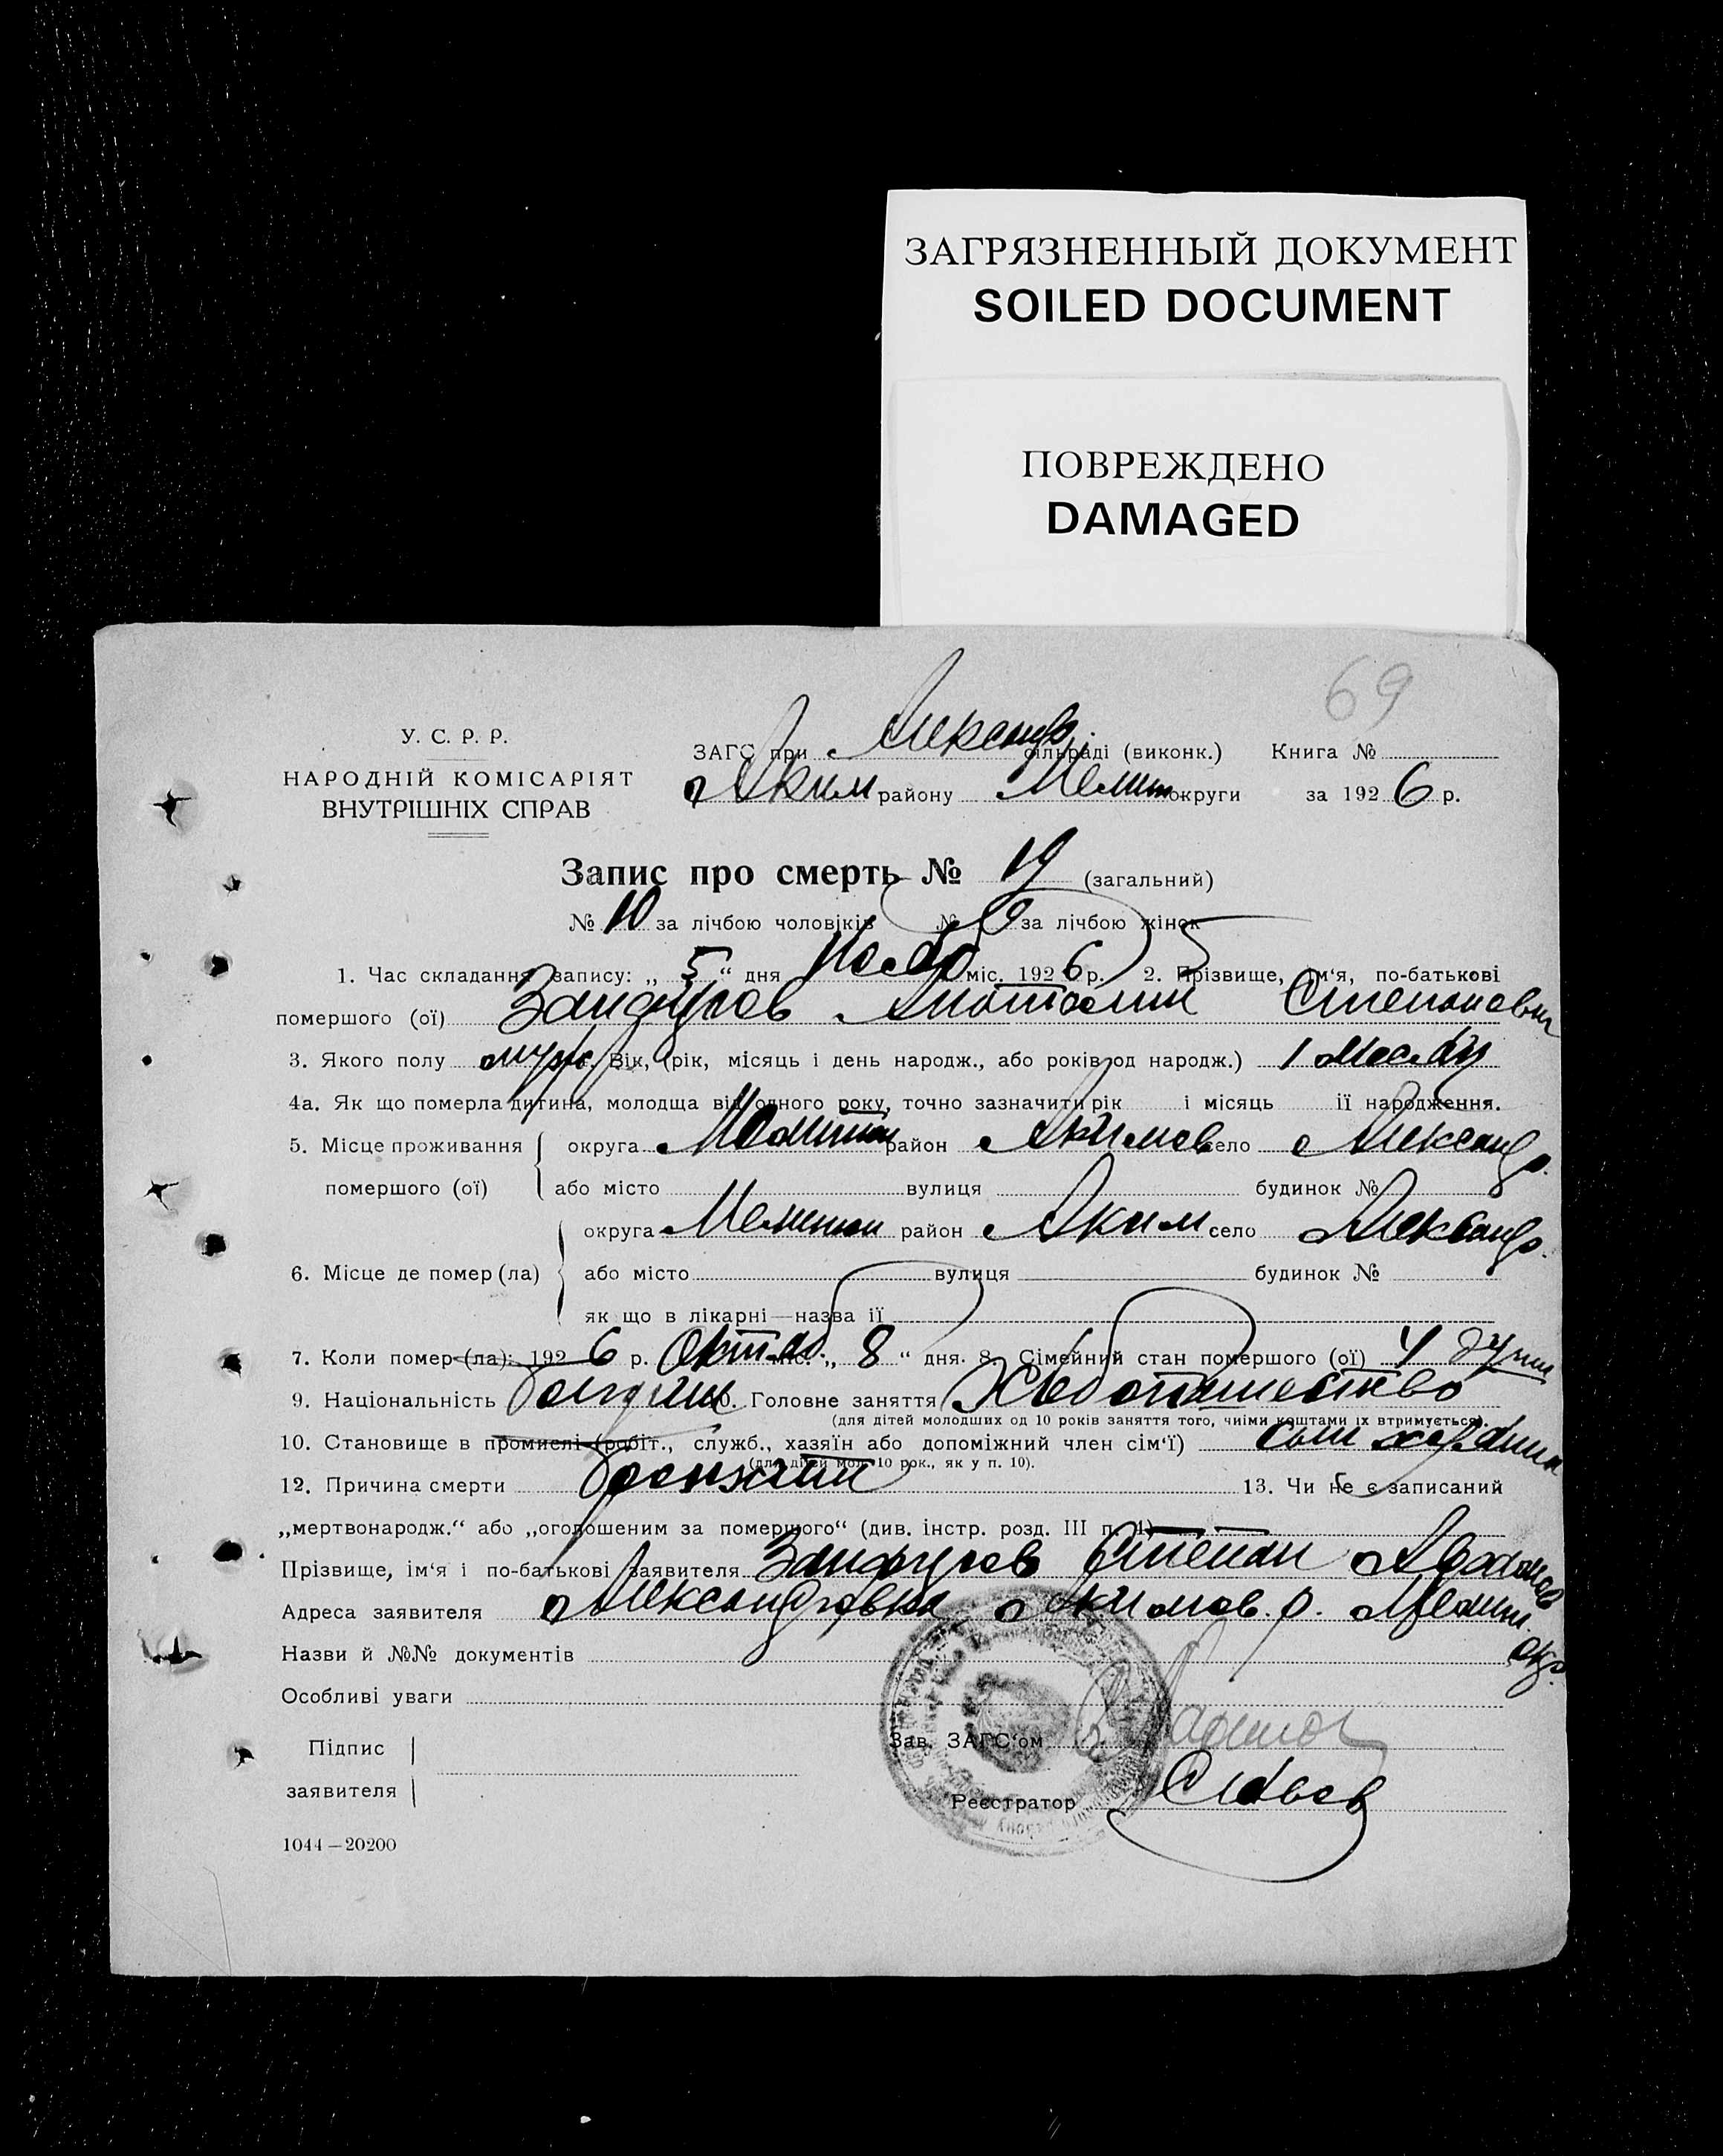 ЗАГРЯЗНЕННЫЙ ДОКУМЕНТ
SOILED DOCUMENT
ПОВРЕЖДЕНО
DAMAGED
69
У. С. Р. Р.
НАРОДНІЙ КОМІСАРІЯТ
ВНУТРІШНІХ СПРАВ
ЗАГС при Александр. сільраді (виконк.) Книга №
Аким району Мелит округи за 1926 р.
Запис про смерть № 19 (загальний)
№ 10 за лічбою чоловіків № 9 за лічбою жінок
1. Час складання запису: „ 5 “ дня Нояб міс. 1926 р. 2. Прізвище, ім'я, по-батькові
помершого (ої) Анатолий Степанович
3. Якого полу муж. Вік, (рік, місяць і день народж., або років од народж.) 1 месяц
4а. Як що померла дитина, молодща від одного року, точно зазначити рік і місяць її народження.
5. Місце проживання помершого (ої) округа Мелитоп район Акимов село Александр.
або місто вулиця будинок №
6. Місце де помер (ла) округа Мелитоп район Аким село Александр.
або місто вулиця будинок №
як що в лікарні—назва її
7. Коли помер (ла): 1926 р. Октяб міс. „ 8 “ дня. 8. Сімейний стан помершого (ої) 4 души
9. Національність болгарин 10. Головне заняття Хлебопашество
(для дітей молодших од 10 років заняття того, чиїми коштами їх втримується).
10. Становище в промислі (робіт., служб., хазяїн або допоміжний член сім'ї) сын хозяина
(для дітей мол. 10 рок., як у п. 10).
12. Причина смерти бронхит 13. Чи не є записаний
„мертвонародж.“ або „оголошеним за помершого“ (див. інстр. розд. III п. 4)
Прізвище, ім'я і по-батькові заявителя Степан
Адреса заявителя Александровка, Акимов. р. Мелит. окр.
Назви й №№ документів
Особливі уваги
Підпис заявителя
Зав. ЗАГС'ом
Реєстратор
1044—20200